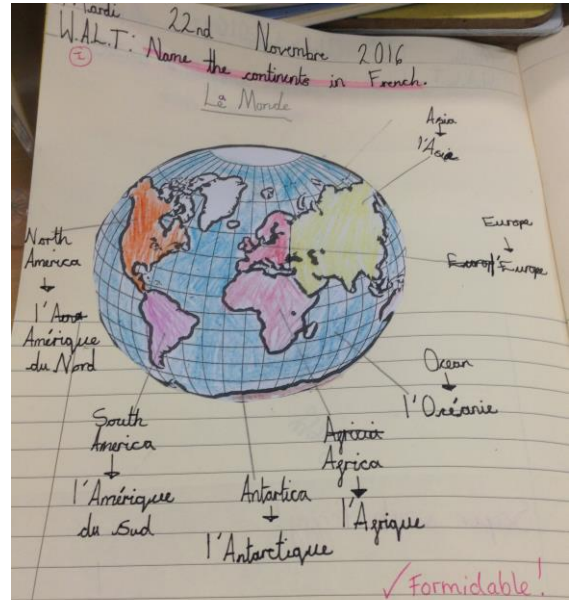 Mardi 22nd Novembre 2016
W.A.L.T: Name the continents in French.
Le Monde
Asia
l'Asie
Europe
l'Europe
North
America
l'Amérique
du Nord
Ocean
l'Océanie
South
America
l'Amérique
du Sud
Africa
l'Afrique
Antartica
l'Antarctique
✓ Formidable!